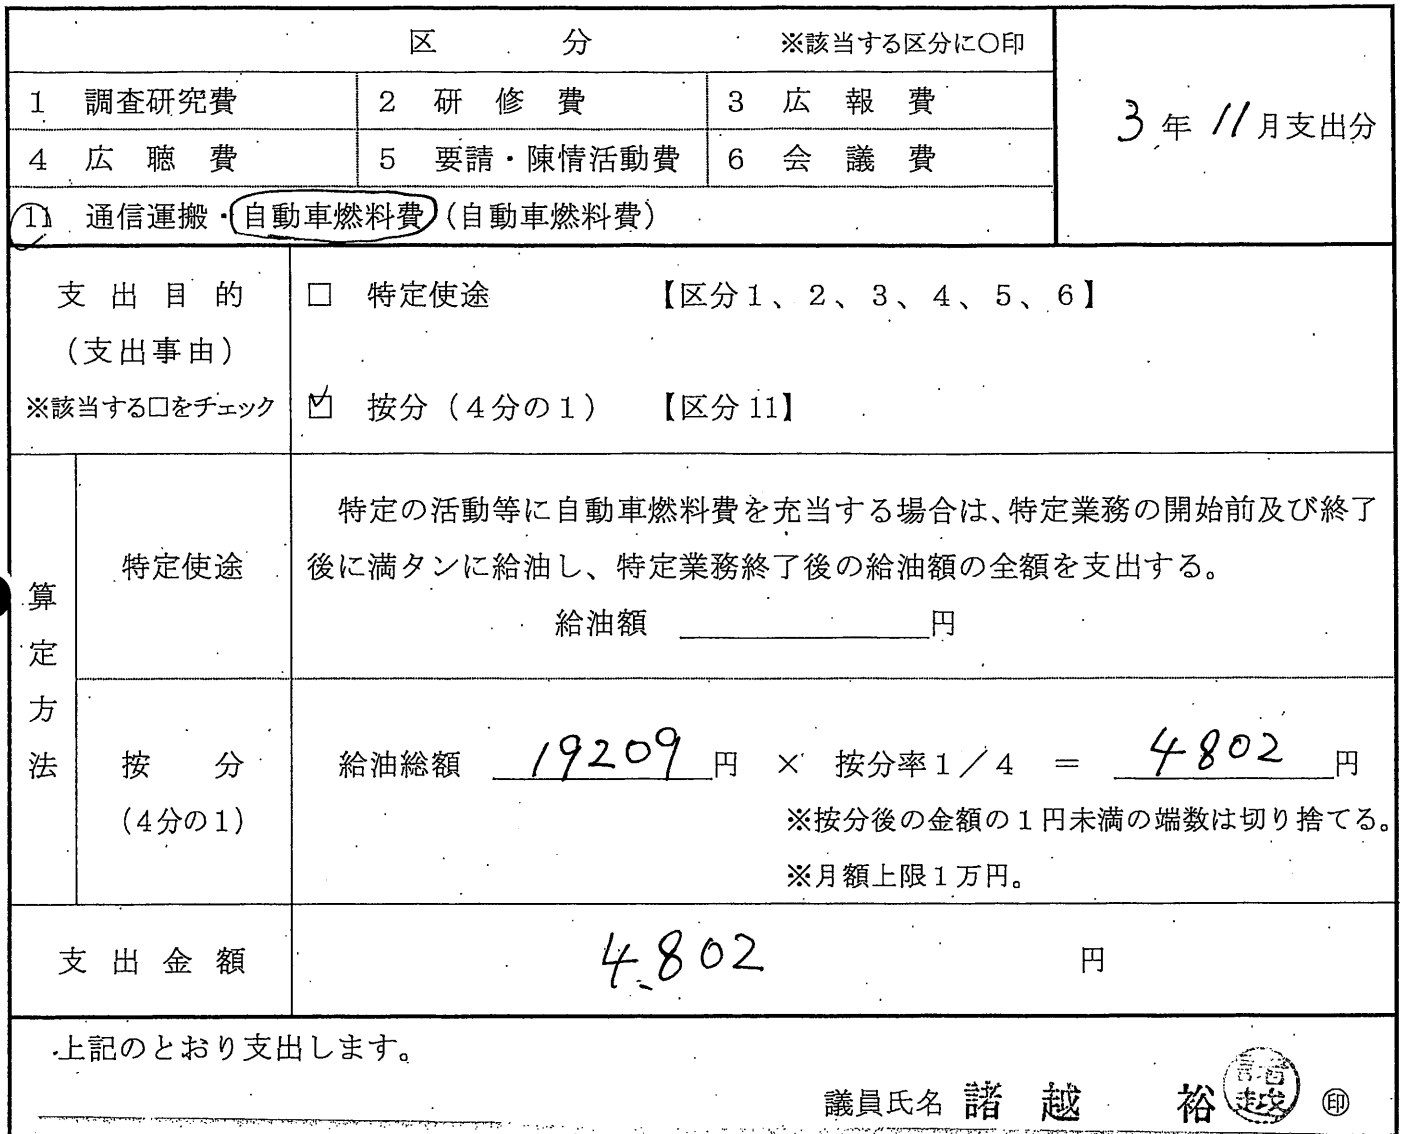 区 分 ※該当する区分に○印
1 調査研究費 2 研修費 3 広報費
3年11月支出分
4 広聴費 5 要請・陳情活動費 6 会議費
11 通信運搬・自動車燃料費(自動車燃料費)
支出目的 □ 特定使途 【区分1、2、3、4、5、6】
(支出事由)
※該当する□をチェック ☑ 按分(4分の1) 【区分11】
算定方法
特定使途
特定の活動等に自動車燃料費を充当する場合は、特定業務の開始前及び終了
後に満タンに給油し、特定業務終了後の給油額の全額を支出する。
給油額 円
按分
(4分の1)
給油総額 19209円 × 按分率1/4 = 4802円
※按分後の金額の1円未満の端数は切り捨てる。
※月額上限1万円。
支出金額 4,802 円
上記のとおり支出します。
議員氏名 諸越 裕 諸越 ㊞